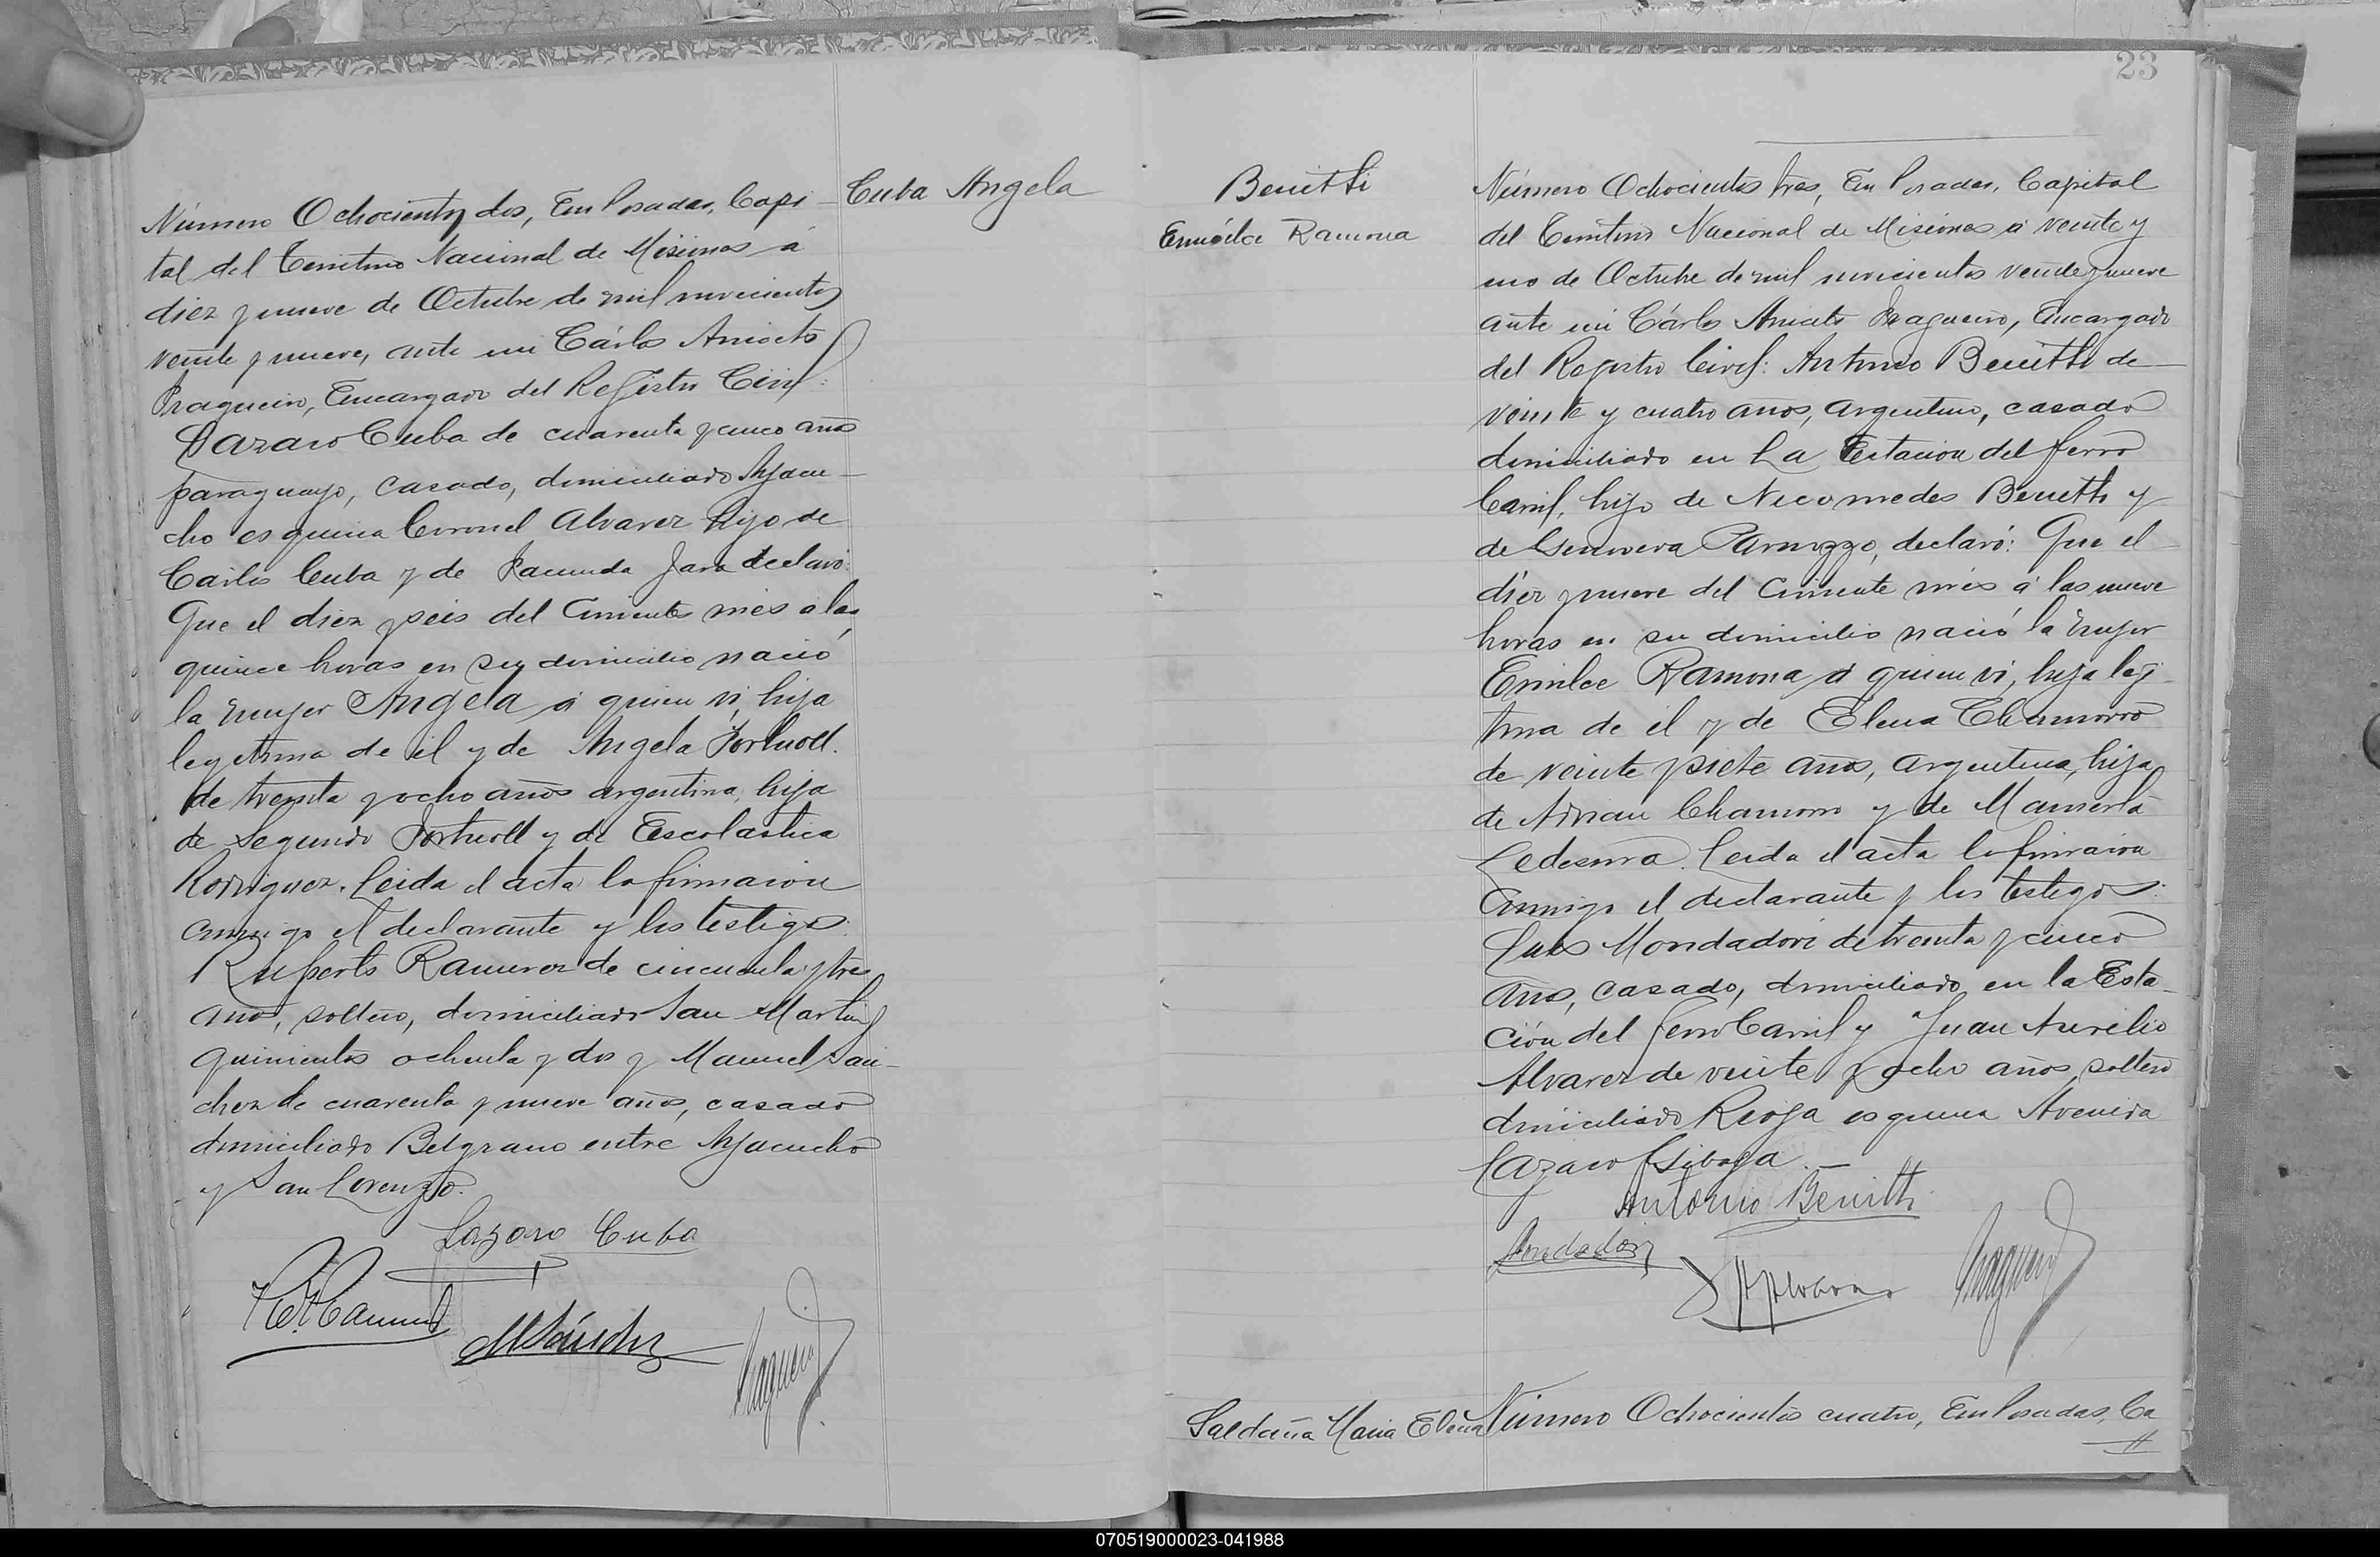 Cuba Angela
Número Ochocientos dos, En Posadas, Capi-
tal del Territorio Nacional de Misiones á
diez y nueve de Octubre de mil novecientos
veinte y nueve, ante mi Cárlos Aniceto
Fragueiro, Encargado del Registro Civil:
Lazaro Cuba de cuarenta y cinco años
paraguayo, casado, domiciliado Ayacu-
cho esquina Coronel Alvarez hijo de
Carlos Cuba y de Facunda Jara declaró:
Que el diez y seis del corriente mes a las
quince horas en su domicilio nació
la mujer Angela á quien vi, hija
legitima de él y de Angela
de treinta y ocho años argentina, hija
de Segundo y de Escolastica
Rodriguez. Leida el acta la firmaron
conmigo el declarante y los testigos:
Ruperto Ramirez de cincuenta y tres
años, soltero, domiciliado San Martin
quinientos ochenta y dos y Manuel San-
chez de cuarenta y nueve años, casado
domiciliado Belgrano entre Ayacucho
y San Lorenzo.
Lazaro Cuba
MSánchez
Fragueiro
23
Benitti
Emilce Ramona
Número Ochocientos tres, En Posadas, Capital
del Territorio Nacional de Misiones á veinte y
uno de Octubre de mil novecientos veinte y nueve
ante mi Cárlos Aniceto Fragueiro, Encargado
del Registro Civil: Antonio Benitti de
veinte y cuatro años, argentino, casado
domiciliado en La Estacion del ferro
Carril, hijo de Necomedes Benitti y
de Genoveva declaró: Que el
diez y nueve del corriente mes á las nueve
horas en su domicilio nació la mujer
Emilce Ramona á quien vi, hija legi-
tima de él y de Elena Chamorro
de veinte y siete años, argentina, hija
de Adrian Chamorro y de Mamerta
Ledesma. Leida el acta la firmaron
conmigo el declarante y los testigos:
Luis Mondadori de treinta y cinco
años, casado, domiciliado en la Esta-
ción del ferro Carril y Juan Aurelio
Alvarez de veinte y ocho años, soltero
domiciliado Rioja esquina Avenida
Lazaro
Antonio Benitti
Mondadori
Fragueiro
Saldaña Maria Elena
Número Ochocientos cuatro, En Posadas, Ca
070519000023-041988